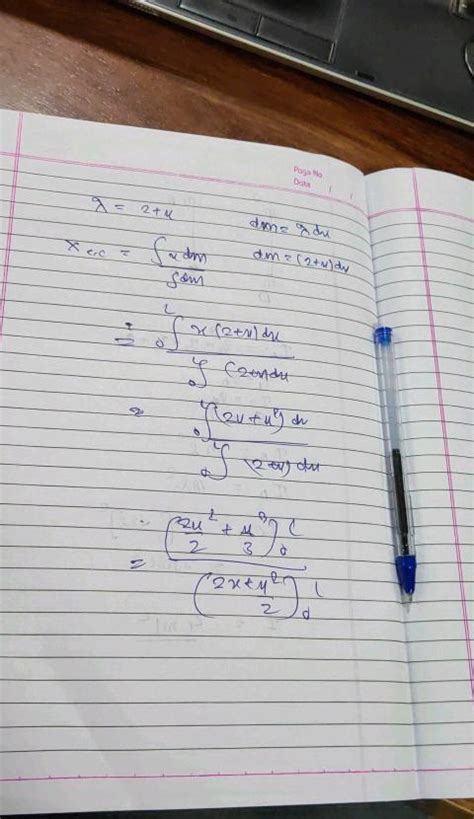 Page No
Date / /
λ = 2+x dm = λ dx
x c.c = ∫ x dm / ∫ dm dm = (2+x) dx
= 0∫L x (2+x) dx / 0∫L (2+x) dx
= 0∫L (2x + x²) dx / 0∫L (2+x) dx
= (2x²/2 + x³/3)0L / (2x + x²/2)0L